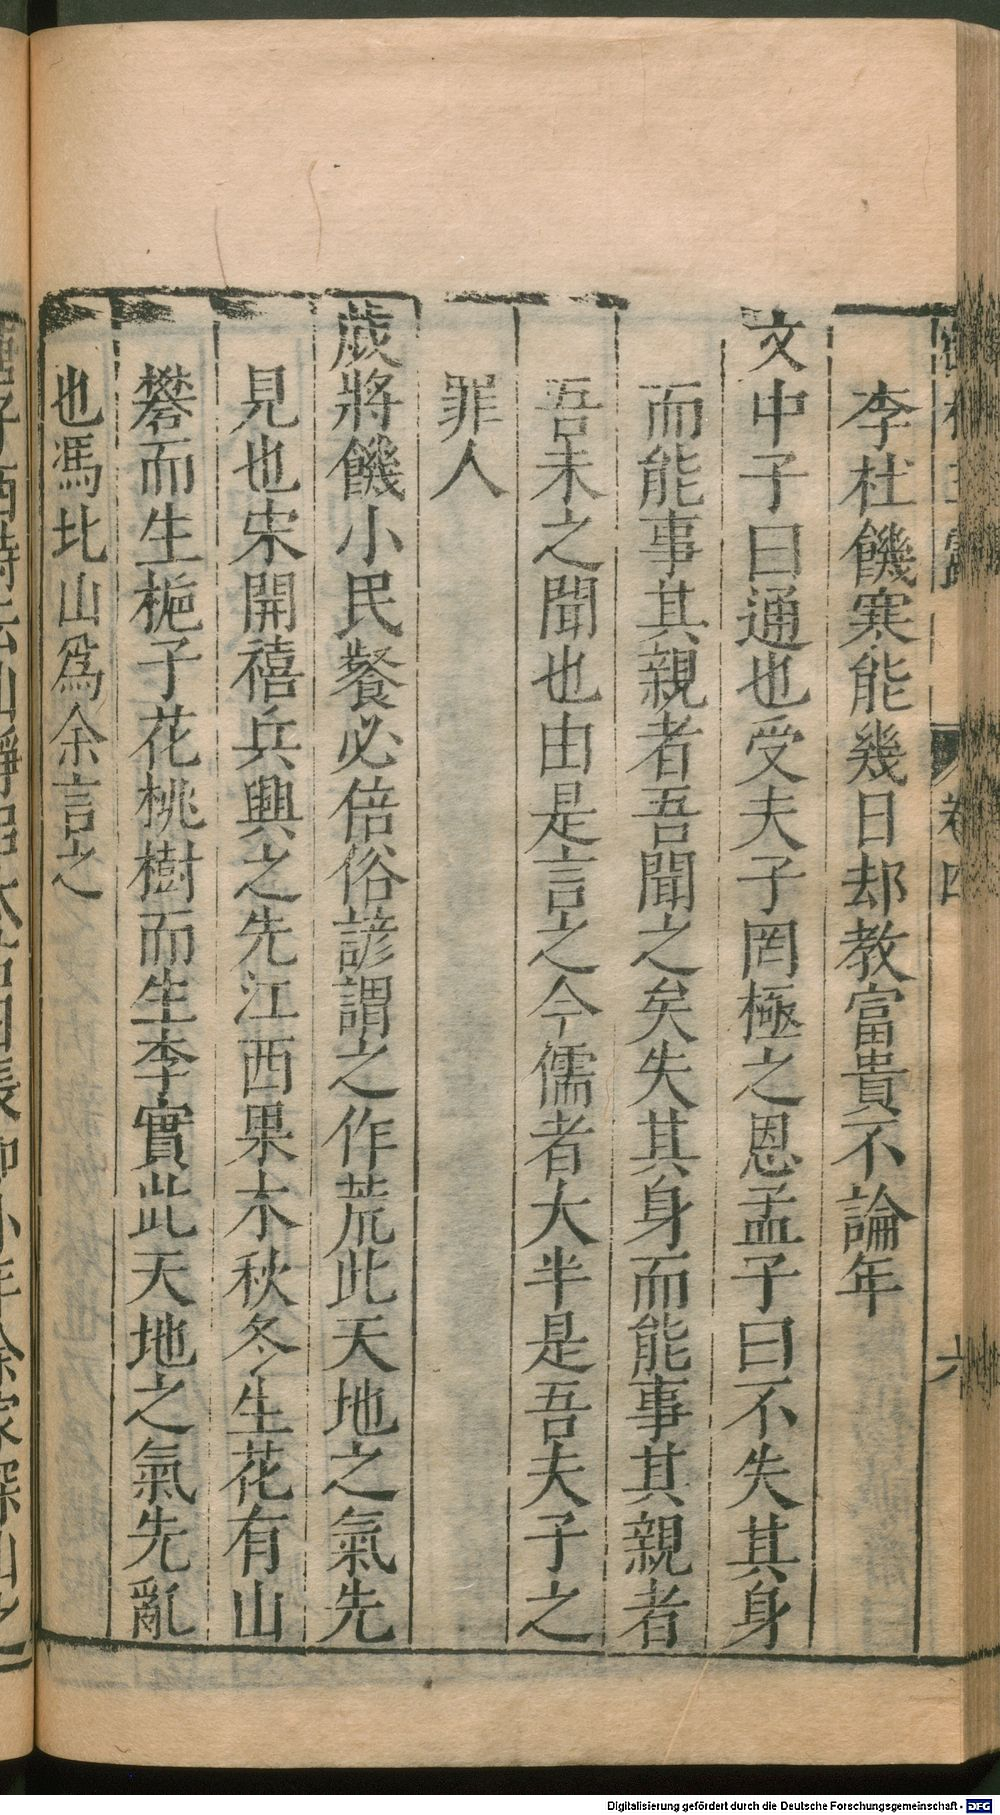 李杜饑寒能幾日却教富貴不論年
文中子曰通也受夫子罔極之恩孟子曰不失其身
而能事其親者吾聞之矣失其身而能事其親者
吾未之聞也由是言之今儒者大半是吾夫子之
罪人
歲將饑小民餐必倍俗諺謂之作荒此天地之氣先
見也宋開禧兵興之先江西果木秋冬生花有山
礬而生梔子花桃樹而生李實此天地之氣先亂
也馮北山爲余言之
卷四
六
Digitalisierung gefördert durch die Deutsche Forschungsgemeinschaft - DFG